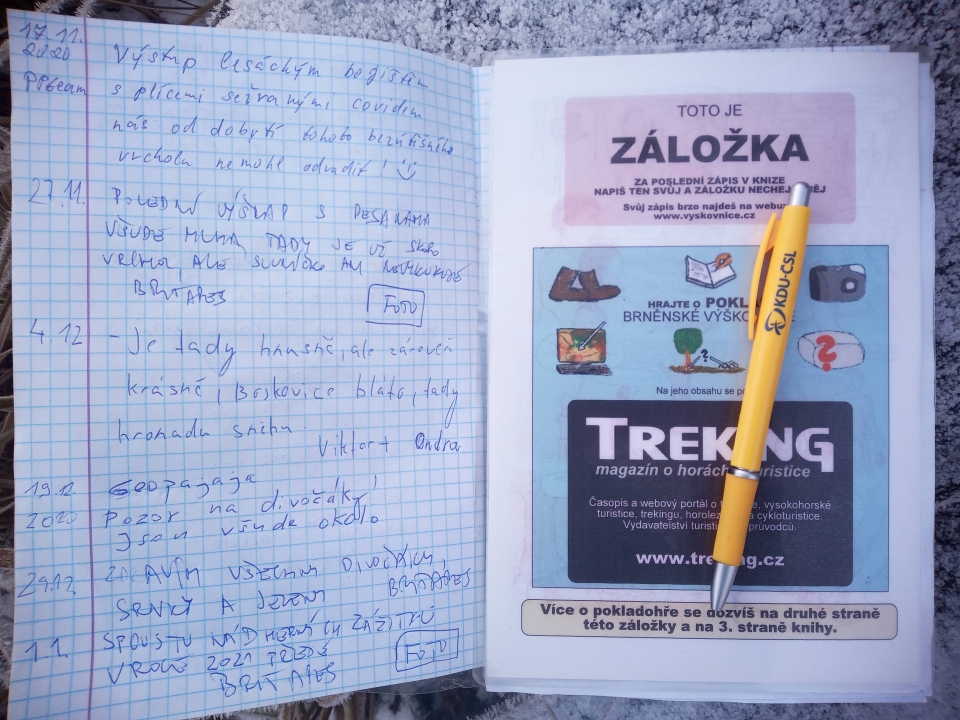 17.11.
2020
PP6eam
Výstup lesáckým bojištěm
s plícemi sežranými covidem
nás od dobytí tohoto bezútěšného
vrcholu nemohl odradit!
27.11.
POLEDNÍ VÝŠLAP S
VŠUDE MLHA, TADY JE UŽ SKORO
VRCHOL, ALE SLUNÍČKO ANI
BRITAPES
FOTO
4.12
- Je tady hnusně, ale zároveň
krásně, Boskovice bláto, tady
hromadu sněhu
Viktor + Ondra
19.12.
2020
Geopajaja
Pozor na divočáky!
Jsou všude okolo
29.12
ZDRAVÍM VŠECHNY DIVOČÁKY,
SRNKY A JELENY
BRITAPES
1.1.
SPOUSTU NÁDHERNÝCH ZÁŽITKŮ
V ROCE 2021 PŘEJE
BRITAPES
FOTO
TOTO JE
ZÁLOŽKA
ZA POSLEDNÍ ZÁPIS V KNIZE
NAPIŠ TEN SVŮJ A ZÁLOŽKU NECHEJ
Svůj zápis brzo najdeš na webu
www.vyskovnice.cz
HRAJTE O POKL
BRNĚNSKÉ VÝŠKO E
?
?
Na jeho obsahu se po
TREKING
magazín o horách turistice
Časopis a webový portál o t e, vysokohorské
turistice, trekingu, horolez a cykloturistice.
Vydavatelství turisti průvodců.
www.treking.cz
Více o pokladohře se dozvíš na druhé straně
této záložky a na 3. straně knihy.
KDU-ČSL